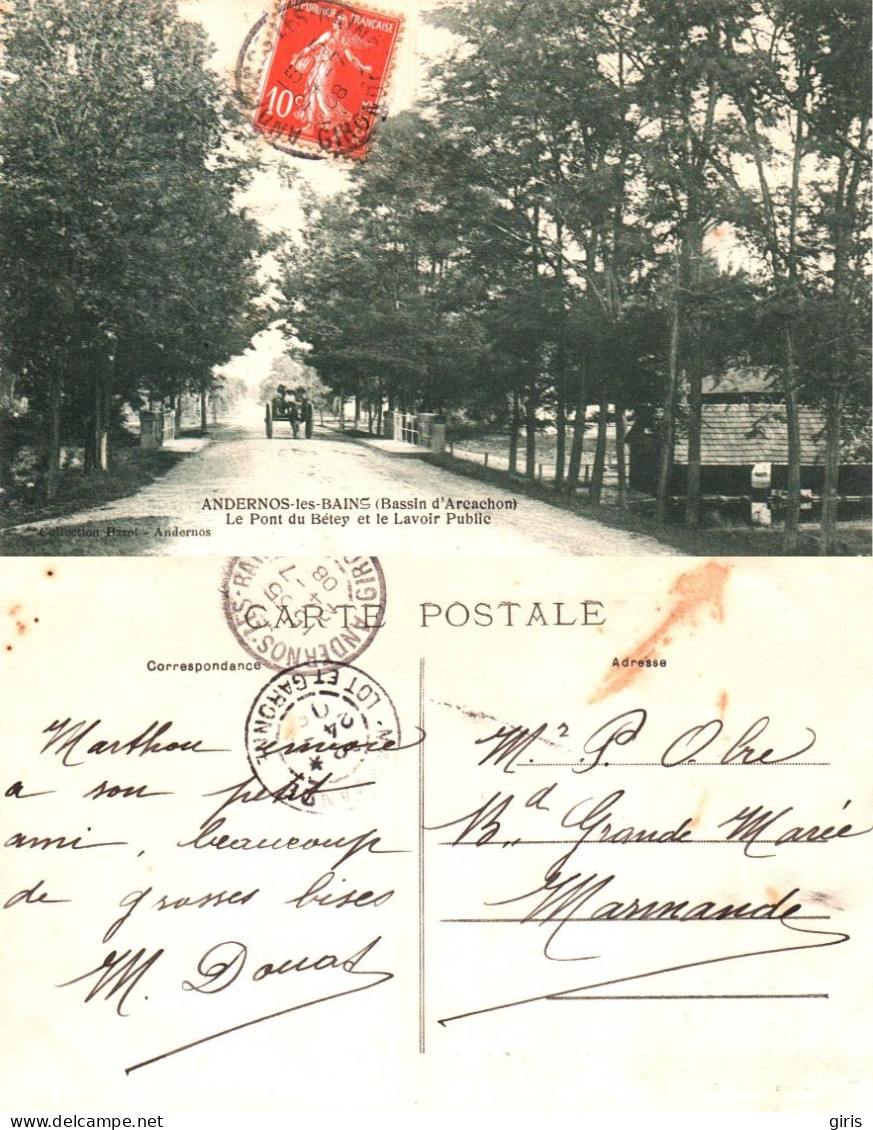 RÉPUBLIQUE FRANÇAISE
10c
GIRONDE
ANDERNOS-les-BAINS (Bassin d'Arcachon)
Le Pont du Bétey et le Lavoir Public
Collection Barot - Andernos
CARTE POSTALE
ANDERNOS-LES-BAINS
Correspondance
Adresse
LOT ET GARONNE
Marthou envoie
a son petit
ami, beaucoup
de grosses bises
M. Douat
Mr. P. Obre
Bd Grande Marée
Marmande
delcampe.net
giris